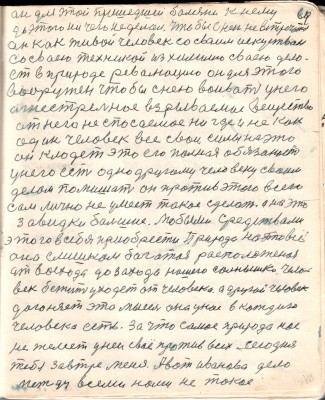 он для этой пришедшей болезни к нему
до этого ни чего не делал. Что бы с нею не встречатся
он как живой человек со своим искуством
со своею техникой из химиею своею дело-
ст в природе революцию он для этого
вооружен чтобы с нею воевать у него
огнестрелное взрываемое вещество
от него не спосаемое ни где и не как
один человек все свои силы на это
он кладет это его полная обязаност
у него есть одно другому человеку своим
делом помишать он против этого всего
сам лично не умеет такое сделать. а на это
завидки балшие. Любыми средствами
этого в себя приобрести Природа на это все
она слишком багатоя расположеная
от восхода до захода нашего солнышка. Чело
век бежит уходет от человека. а другой человек
догоняет это мысль она у нас в каждого
человека есть. За что самое природа нас
не жалеет у ней своё против всех. сегодня
тебя завтре меня. А вот иванова дело
между всеми нами не такое